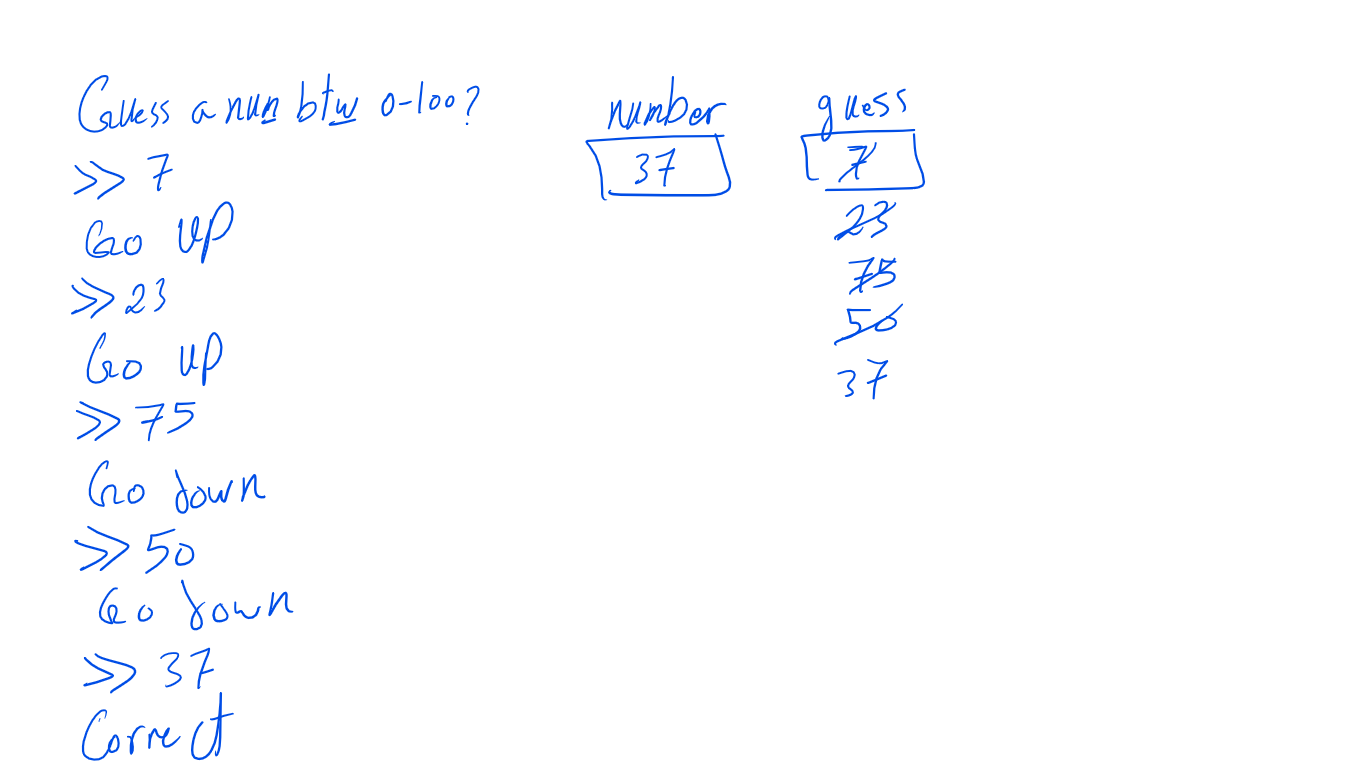 Guess a nun btw 0-100?
>> 7
Go up
>> 23
Go up
>> 75
Go down
>> 50
Go down
>> 37
Correct
number
37
guess
7
23
75
50
37